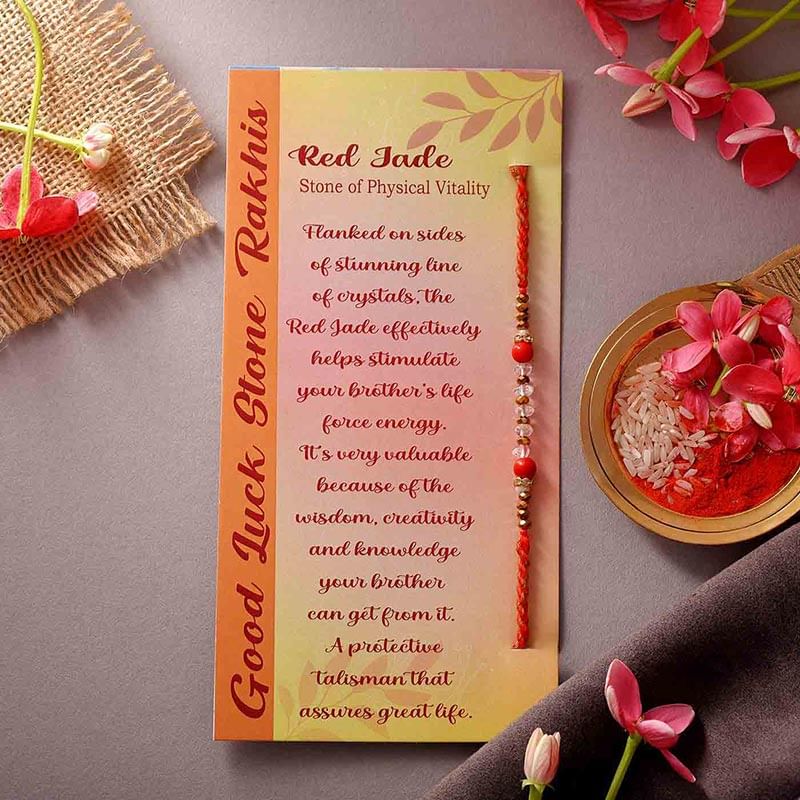 Good Luck Stone Rakhis
Red Jade
Stone of Physical Vitality
Flanked on sides
of stunning line
of crystals, the
Red Jade effectively
helps stimulate
your brother's life
force energy.
It's very valuable
because of the
wisdom, creativity
and knowledge
your brother
can get from it.
A protective
talisman that
assures great life.